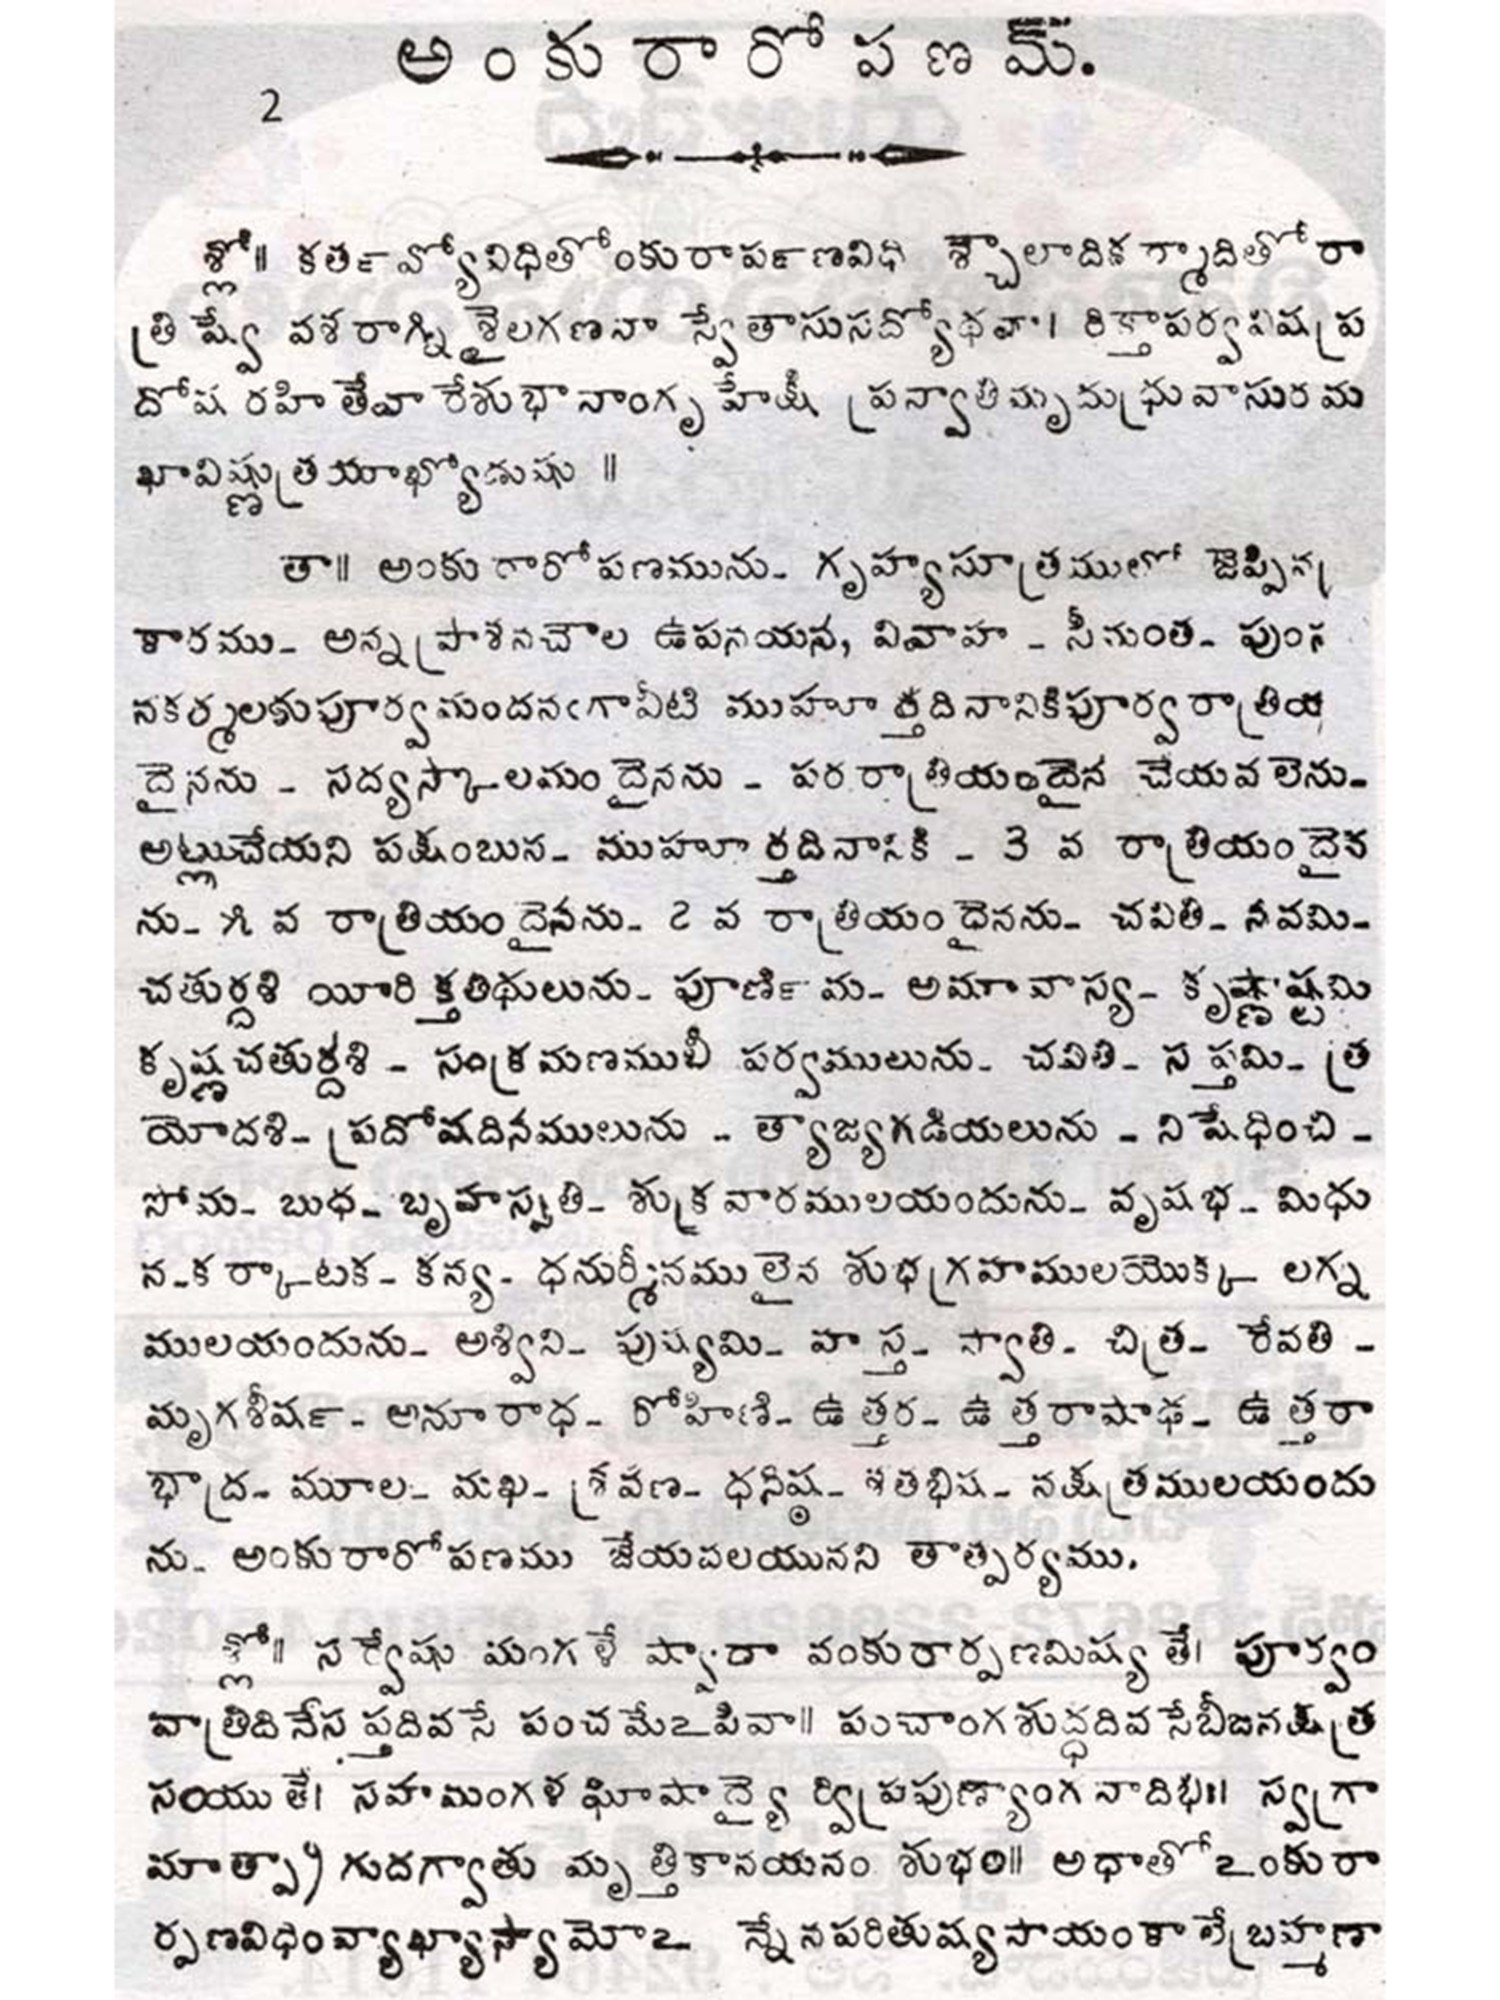 అంకురారోపణమ్.
2
శ్లో॥ కతఁ వ్యోవిధితోంకురాపఁణవిధి శ్చౌలాదిక ర్మాదితో రా
త్రి ష్వే వశరాగ్ని శైలగణనా స్వేతాసుసద్యోథవా। రిక్తాపర్వవిష ప్ర
దోష రహి తేవా రేశుభానాంగృ హేక్షీ ప్రస్వాతిమృదుధ్రువాసురమ
ఖావిష్ణుత్రయాఖ్యోడుషు ॥
తా॥ అంకురారోపణమును- గృహ్యసూత్రములో జెప్పినప్ర
కారము- అన్నప్రాశనచౌల ఉపనయన, వివాహ - సీమంత- పుంస
నకర్మలకుపూర్వమందనఁగావీటి ముహూర్తదినానికిపూర్వరాత్రియ
దైనను - సద్యస్కాలమందైనను - పరరాత్రియందైన చేయవలెను-
అట్లుచేయని పక్షంబున- ముహూర్తదినానికి - 3 వ రాత్రియందైన
ను- ౫ వ రాత్రియందైనను- ౭ వ రాత్రియందైనను- చవితి- నవమి-
చతుర్దశి యీరిక్తతిథులును- పూణిఁమ- అమావాస్య- కృష్ణాష్టమి
కృష్ణచతుర్దశి - సంక్రమణములీ పర్వములును- చవితి- సప్తమి- త్ర
యోదశి- ప్రదోషదినములును - త్యాజ్యగడియలును - నిషేధించి -
సోమ- బుధ- బృహస్పతి- శుక్రవారములయందును- వృషభ- మిధు
న-కర్కాటక- కన్య- ధనుర్మీనములైన శుభగ్రహములయొక్క లగ్న
ములయందును- అశ్విని- పుష్యమి- హస్త- స్వాతి- చిత్ర- రేవతి -
మృగశీషఁ- అనూరాధ- రోహిణి- ఉత్తర- ఉత్తరాషాఢ- ఉత్తరా
భాద్ర- మూల- మఖ- శ్రవణ- ధనిష్ఠ- శతభిష- నక్షత్రములయందు
ను- అంకురారోపణము జేయవలయునని తాత్పర్యము.
శ్లో॥ సర్వేషు మంగళే ష్వారా వంకురార్పణమిష్యతే। పూర్వం
వాత్రిదినేసప్తదివసే పంచమేఽపివా॥ పంచాంగశుద్ధదివసేబీజనక్షత్ర
సంయుతే। సహమంగళఘోషాద్యై ర్విప్రపుణ్యాంగనాదిభిః। స్వగ్రా
మాత్ప్రాగుదగ్వాతు మృత్తికానయనం శుభం॥ అధాతోఽంకురా
ర్పణవిధింవ్యాఖ్యాస్యామోఽ న్నేనపరితుష్యసాయంకాలేబ్రహ్మణా